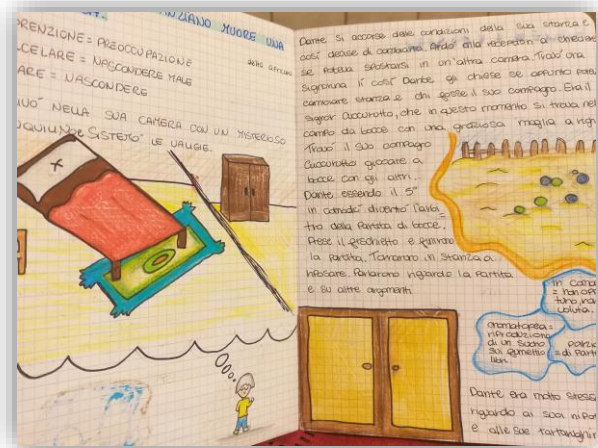 ANZIANO MUORE UNA
RENZIONE = PREOCCUPAZIONE
CELARE = NASCONDERE MALE
ARE = NASCONDERE
NELLA SUA CAMERA CON UN MISTERIOSO
SISTEMO' LE VALIGIE.
Dante si accorse delle condizioni della sua stanza e
così decise di cambiarla. Andò alla reception a chiedere
se poteva spostarsi in un'altra camera. Trovò una
signorina lì così Dante gli chiese se appunto pote
cambiare stanza e chi fosse il suo compagno. Era il
signor Cuccurotto, che in questo momento si trova nel
campo da bocce con una graziosa maglia a righ
Trovò il suo compagno
Cuccurotto giocare a
bocce con gli altri.
Dante essendo il 5°
in comodo diventò l'arbi=
tro della partita di bocce.
Prese il fischietto e
la partita. Tornarono in stanza a
riposare. Parlarono riguardo la partita
e su altre argomenti.
= non op
tuno, no
voluta.
onomatopea=
riproduzione
di un suono
sui fumetti o
libri.
= di part
Dante era molto stress
riguardo ai suoi nipot
e alle sue